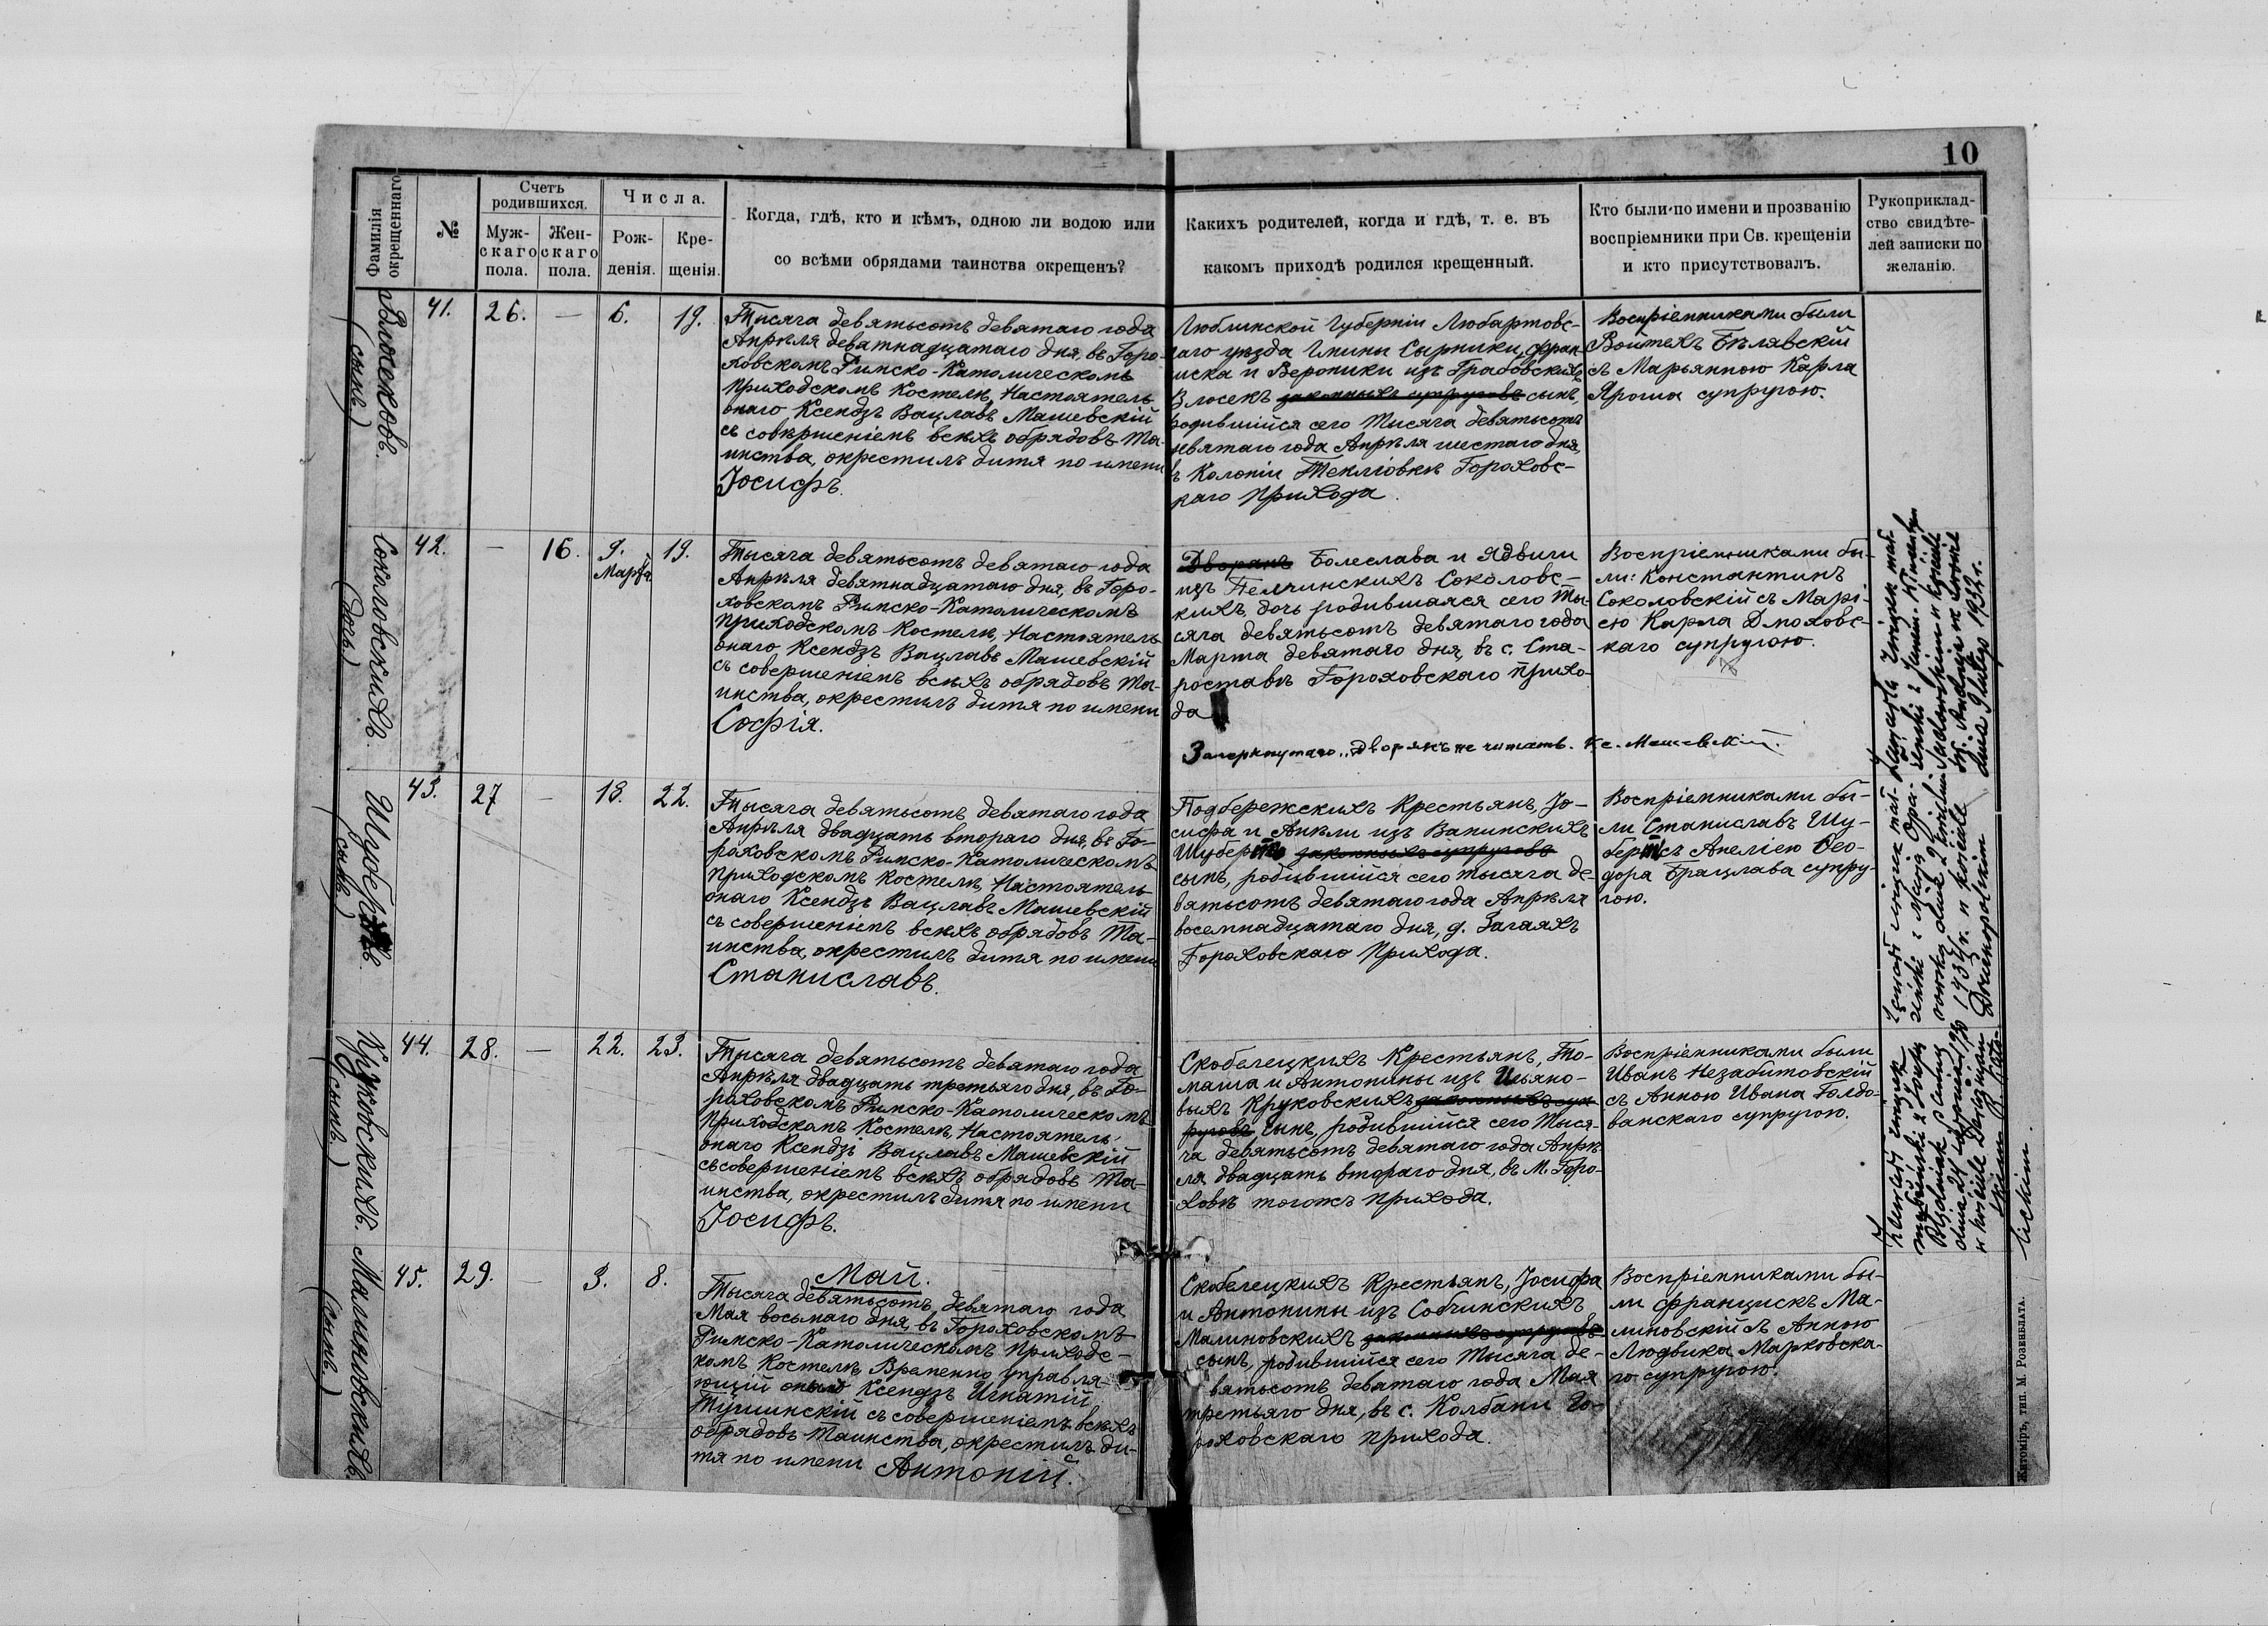 10
Фамилія
окрещеннаго
№
Счетъ
родившихся.
Муж-
скаго
пола.
Жен-
скаго
пола.
Числа.
Рож-
денія.
Кре-
щенія.
Когда, гдѣ, кто и кѣмъ, одною ли водою или
со всѣми обрядами таинства окрещенъ?
Каких​ъ родителей, когда и гдѣ, т. е. въ
какомъ приходѣ родился крещенный.
Кто были по имени и прозванію
воспріемники при Св. крещеніи
и кто присутствовалъ.
Рукоприклад-
ство свидѣте-
лей записки по
желанію.
Влосековъ.
(сынъ)
41.
26.
—
6.
19.
Тысяча девятьсотъ девятаго года
Апрѣля девятнадцатаго дня, въ Горо-
ховскомъ Римско-Католическомъ
Приходскомъ Костелѣ, Настоятель
онаго Ксендзъ Вацлавъ Машевскій
съ совершеніемъ всѣхъ обрядовъ Та-
инства, окрестилъ дитя по имени
Іосифъ.
Люблинской Губерніи Любартовс-
каго уѣзда Гмины Сырники, Фран-
циска и Вероники изъ Грабовскихъ
Влосекъ законныхъ супруговъ сынъ,
родившійся сего Тысяча девятьсотъ
девятаго года Апрѣля шестаго дня,
въ Колоніи Текліовкѣ Гороховс-
каго прихода.
Воспріемниками были
Войтехъ Бѣлявскій
съ Марьянною Карла
Яроша супругою.
Соколовскихъ.
(дочь)
42.
—
16.
9.
Марта
19.
Тысяча девятьсотъ девятаго года
Апрѣля девятнадцатаго дня, въ Горо-
ховскомъ Римско-Католическомъ
Приходскомъ Костелѣ, Настоятель
онаго Ксендзъ Вацлавъ Машевскій
съ совершеніемъ всѣхъ обрядовъ Та-
инства, окрестилъ дитя по имени
Софія.
Дворянъ Болеслава и Ядвиги
изъ Пелчинскихъ Соколовс-
кихъ, дочь родившаяся сего Ты-
сяча девятьсотъ девятаго года
Марта девятаго дня, въ с. Ста-
роставъ Гороховскаго прихо-
да
Зачеркнутаго „Дворянъ не читать. Кс. Машевскій.
Воспріемниками бы-
ли: Константинъ
Соколовскій съ Марі-
ею Карла Дмоховс-
каго супругою.
(сынъ)
43.
27
—
18.
22.
Тысяча девятьсотъ девятаго года
Апрѣля двадцать втораго дня, въ Го-
роховскомъ Римско-Католическомъ
Приходскомъ Костелѣ, Настоятель
онаго Ксендзъ Вацлавъ Машевскій
съ совершеніемъ всѣхъ обрядовъ Та-
инства, окрестилъ дитя по имени
Станиславъ.
Подбережскихъ Крестьянъ, Іо-
сифа и Анѣли изъ Вапинскихъ
законныхъ супруговъ
сынъ, родившійся сего тысяча де-
вятьсотъ девятаго года Апрѣля
восемнадцатаго дня, д. Загаяхъ
Гороховскаго Прихода.
Воспріемниками бы-
ли Станиславъ Шу-
съ Анеліею Ѳео-
дора Брацлава супру-
гою.
Круковскихъ.
(сынъ)
44.
28.
—
22.
23.
Тысяча девятьсотъ девятаго года
Апрѣля двадцать третьяго дня, въ Го-
роховскомъ Римско-Католическомъ
Приходскомъ Костелѣ, Настоятель
онаго Ксендзъ Вацлавъ Машевскій
съ совершеніемъ всѣхъ обрядовъ Та-
инства, окрестилъ дитя по имени
Іосифъ.
Скобелецкихъ Крестьянъ, То-
маша и Антонины изъ Ильяно-
выхъ Круковскихъ законныхъ суп-
руговъ сынъ, родившійся сего Тыся-
ча девятьсотъ девятаго года Апрѣ-
ля двадцать втораго дня, въ М. Горо-
ховѣ тогожъ прихода.
Воспріемниками были
Иванъ Незабитовскій
съ Анною Ивана Голдо-
ванскаго супругою.
Малиновскихъ
(сынъ)
45.
29.
—
3.
8.
Май.
Тысяча девятьсотъ девятаго года
Мая восьмаго дня, въ Гороховскомъ
Римско-Католическомъ Приходс-
комъ Костелѣ, Временно управля-
ющій онымъ Ксендзъ Игнатій
съ совершеніемъ всѣхъ
обрядовъ Таинства, окрестилъ ди-
тя по имени Антоній.
Скобелецкихъ Крестьянъ, Іосифа
и Антонины изъ Собчинскихъ
Малиновскихъ законныхъ супруговъ
сынъ, родившійся сего Тысяча де-
вятьсотъ девятаго года Мая
третьяго дня, въ с. Колбани Го-
роховскаго прихода.
Воспріемниками бы-
ли Францискъ Ма-
линовскій съ Анною
Людвика Марковска-
го супругою.
dnia 9 lutego 1932 r.
Житоміръ, тип. М. Розенблата.